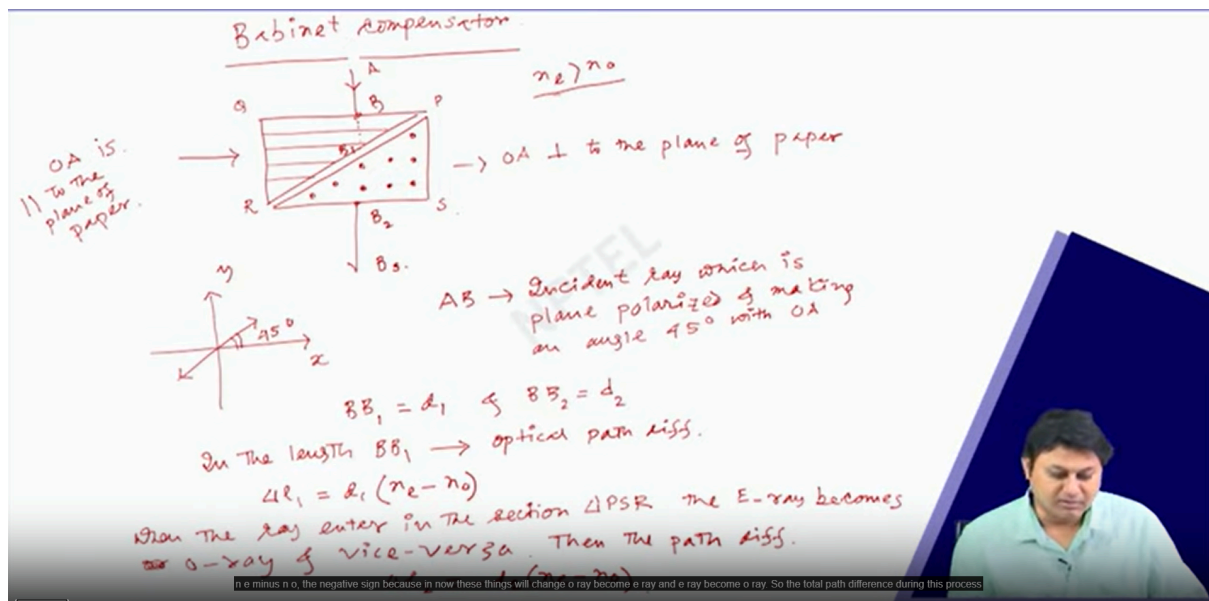 Babinet compensator.
A
n_e > n_o
Q
B
P
OA is.
|| to the
plane of
paper.
B_1
→ OA ⊥ to the plane of paper
R
S.
B_2
B_3.
NPTEL
y
45°
x
AB → Incident ray which is
plane polarized & making
an angle 45° with OA
BB_1 = d_1 & BB_2 = d_2
In the length BB_1 → optical path diff.
Δl_1 = d_1 (n_e - n_o)
When the ray enter in the section ΔPSR the E-ray becomes
O-ray & vice-versa. Then the path diff.
n e minus n o, the negative sign because in now these things will change o ray become e ray and e ray become o ray. So the total path difference during this process